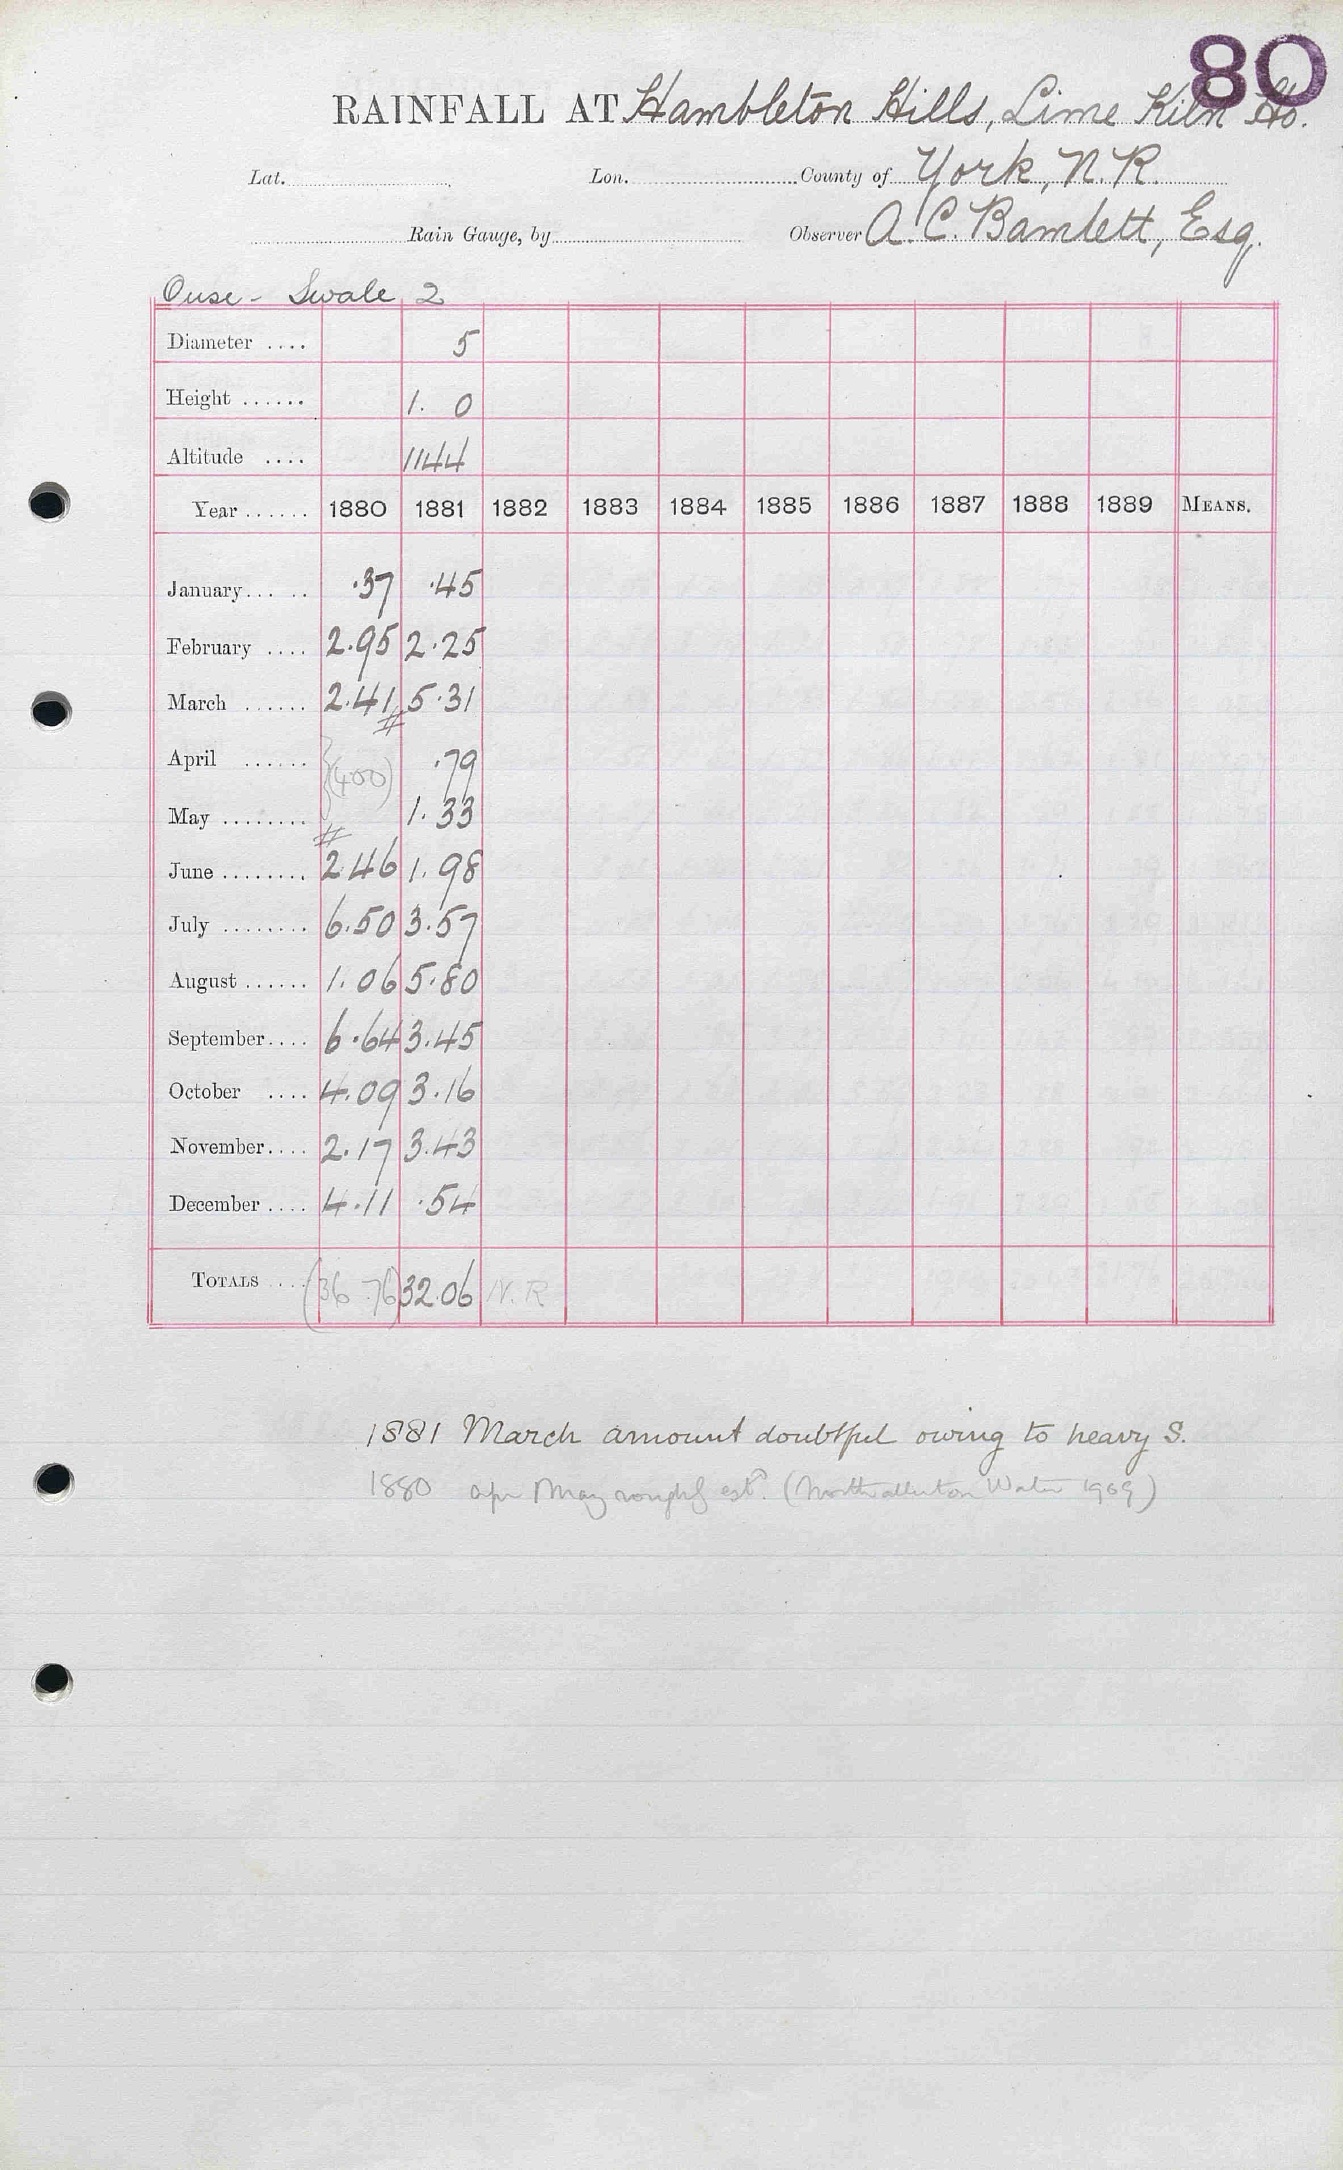 80
RAINFALL AT Hambleton Hills, Lime Kiln Ho.
Lat. Lon. County of York, N.R.
Rain Gauge, by Observer A. C. Bamlett, Esq.
Ouse - Swale 2
Diameter .... 5
Height ...... 1. 0
Altitude .... 1144
Year ...... 1880 1881 1882 1883 1884 1885 1886 1887 1888 1889 MEANS.
January ... .. .37 .45
February .... 2.95 2.25
March ...... 2.41 5.31
April ...... (400) .79
May ........ 1.33
June ........ 2.46 1.98
July ........ 6.50 3.57
August ...... 1.06 5.80
September .... 6.64 3.45
October .... 4.09 3.16
November .... 2.17 3.43
December .... 4.11 .54
TOTALS .... (36.76) 32.06 N.R
1881 March amount doubtful owing to heavy S.
1880 apr May roughly est. (Northallerton Water 1909)